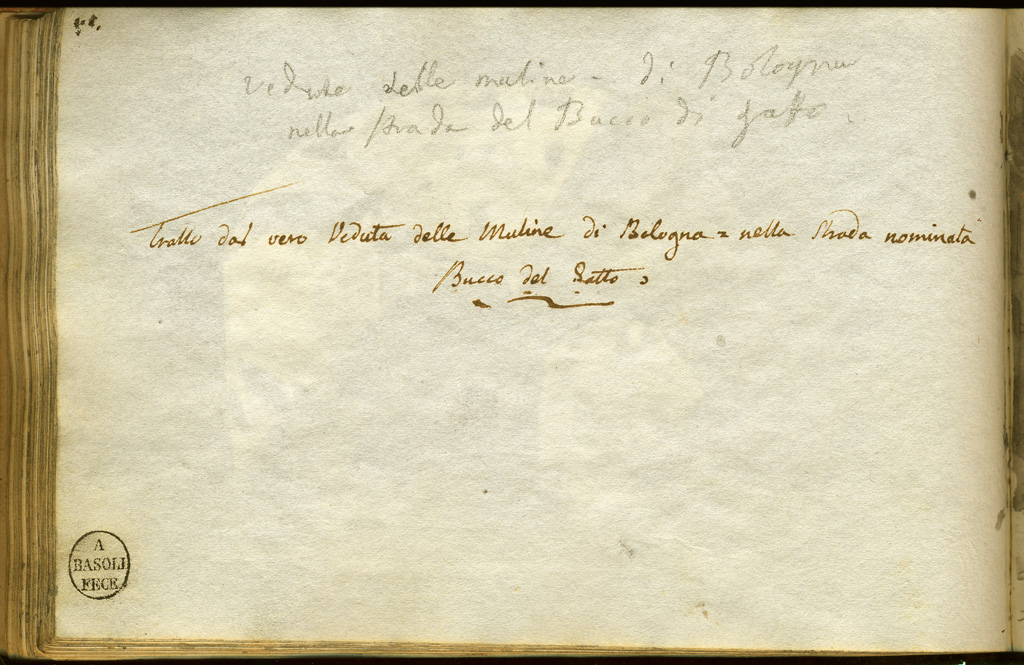 Vedute delle muline - di Bologna
nella strada del Bucco di gatto.
Tratto dal vero Veduta delle Muline di Bologna = nella Strada nominata
Bucco del Gatto
A
BASOLI
FECE